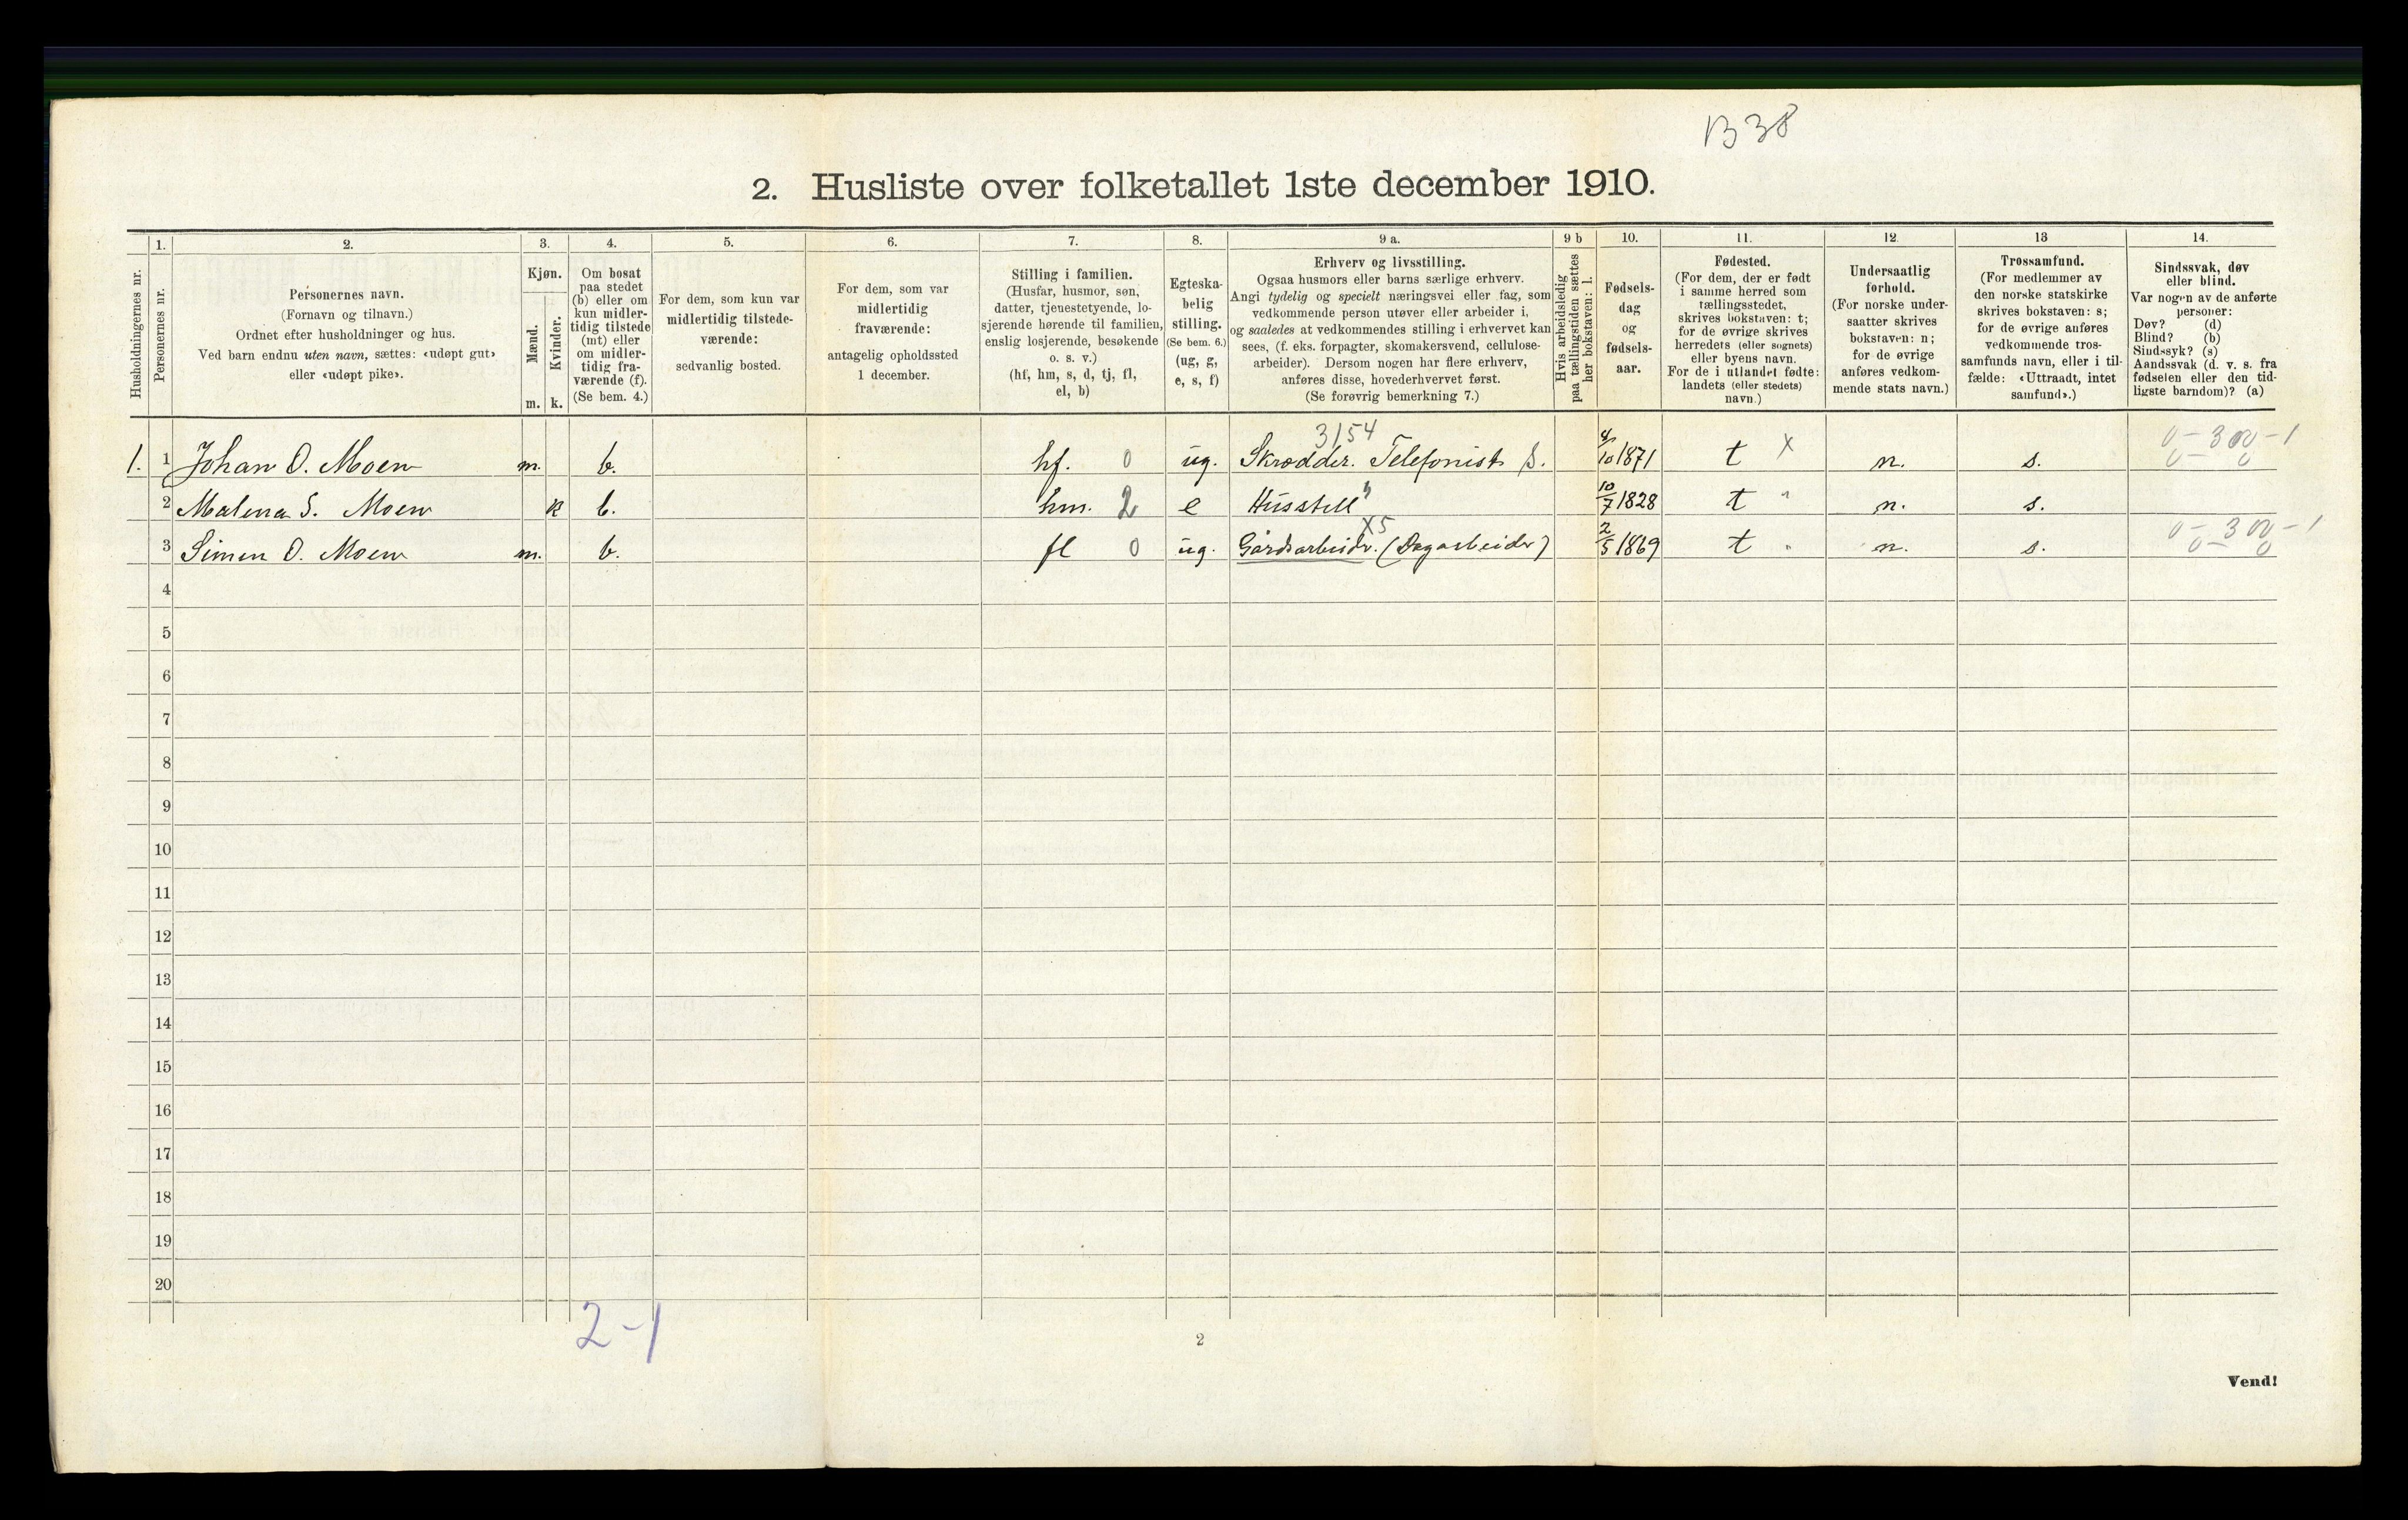 B 38
2. Husliste over folketallet 1ste december 1910.
Husholdningernes nr.
1.
Personernes nr.
2.
Personernes navn.
(Fornavn og tilnavn.)
Ordnet efter husholdninger og hus.
Ved barn endnu uten navn, sættes: «udøpt gut»
eller «udøpt pike».
3.
Kjøn.
Mænd.
Kvinder.
m. k.
4.
Om bosat
paa stedet
(b) eller om
kun midler-
tidig tilstede
(mt) eller
om midler-
tidig fra-
værende (f).
(Se bem. 4.)
5.
For dem, som kun var
midlertidig tilstede-
værende:
sedvanlig bosted.
6.
For dem, som var
midlertidig
fraværende:
antagelig opholdssted
1 december.
7.
Stilling i familien.
(Husfar, husmor, søn,
datter, tjenestetyende, lo-
sjerende hørende til familien,
enslig losjerende, besøkende
o. s. v.)
(hf, hm, s, d, tj, fl,
el, b)
8.
Egteska-
belig
stilling.
(Se bem. 6.)
(ug, g,
e, s, f)
9 a.
Erhverv og livsstilling.
Ogsaa husmors eller barns særlige erhverv.
Angi tydelig og specielt næringsvei eller fag, som
vedkommende person utøver eller arbeider i,
og saaledes at vedkommendes stilling i erhvervet kan
sees, (f. eks. forpagter, skomakersvend, cellulose-
arbeider). Dersom nogen har flere erhverv,
anføres disse, hovederhvervet først.
(Se forøvrig bemerkning 7.)
9 b
Hvis arbeidsledig
paa tællingstiden sættes
her bokstaven: l.
10.
Fødsels-
dag
og
fødsels-
aar.
11.
Fødested.
(For dem, der er født
i samme herred som
tællingsstedet,
skrives bokstaven: t;
for de øvrige skrives
herredets (eller sognets)
eller byens navn.
For de i utlandet fødte:
landets (eller stedets)
navn.)
12.
Undersaatlig
forhold.
(For norske under-
saatter skrives
bokstaven: n;
for de øvrige
anføres vedkom-
mende stats navn.)
13
Trossamfund.
(For medlemmer av
den norske statskirke
skrives bokstaven: s;
for de øvrige anføres
vedkommende tros-
samfunds navn, eller i til-
fælde: «Uttraadt, intet
samfund».)
14.
Sindssvak, døv
eller blind.
Var nogen av de anførte
personer:
Døv? (d)
Blind? (b)
Sindssyk? (s)
Aandssvak (d. v. s. fra
fødselen eller den tid-
ligste barndom)? (a)
3154
1. 1 Johan O. Moen m. b. hf. 0 ug. Skrædder. Telefonist 4/10 1871 t X n. s.
2 Malena S. Moen k b. hm. 2 e Husstell " 10/7 1828 t " n. s.
X5
3 Simen O. Moen m. b. fl 0 ug. Gårdsarbeider. (Dagarbeider) 2/5 1869 t " n. s.
4
5
6
7
8
9
10
11
12
13
14
15
16
17
18
19
20
2-1
2
Vend!